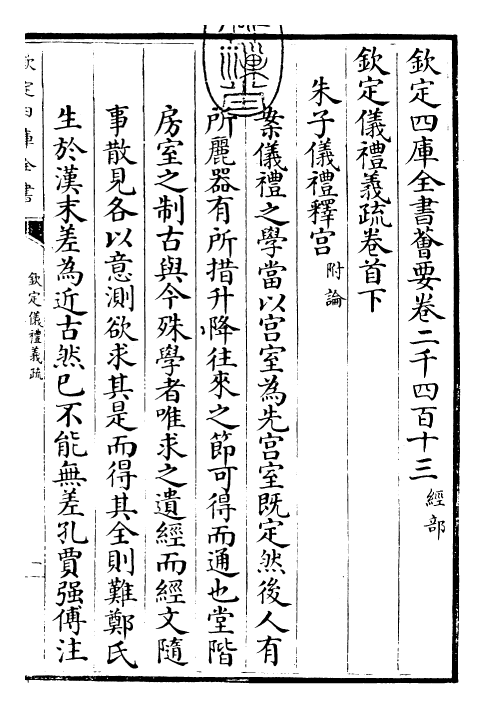 欽定四庫全書薈要卷二千四百十三 經部
欽定儀禮義疏卷首下
朱子儀禮釋宫 附論
案儀禮之學當以宫室為先宫室既定然後人有
所麗器有所措升降往來之節可得而通也堂階
房室之制古與今殊學者唯求之遺經而經文隨
事散見各以意測欲求其是而得其全則難鄭氏
生於漢末差為近古然已不能無差孔賈强傅注
欽定四庫全書
欽定儀禮義疏